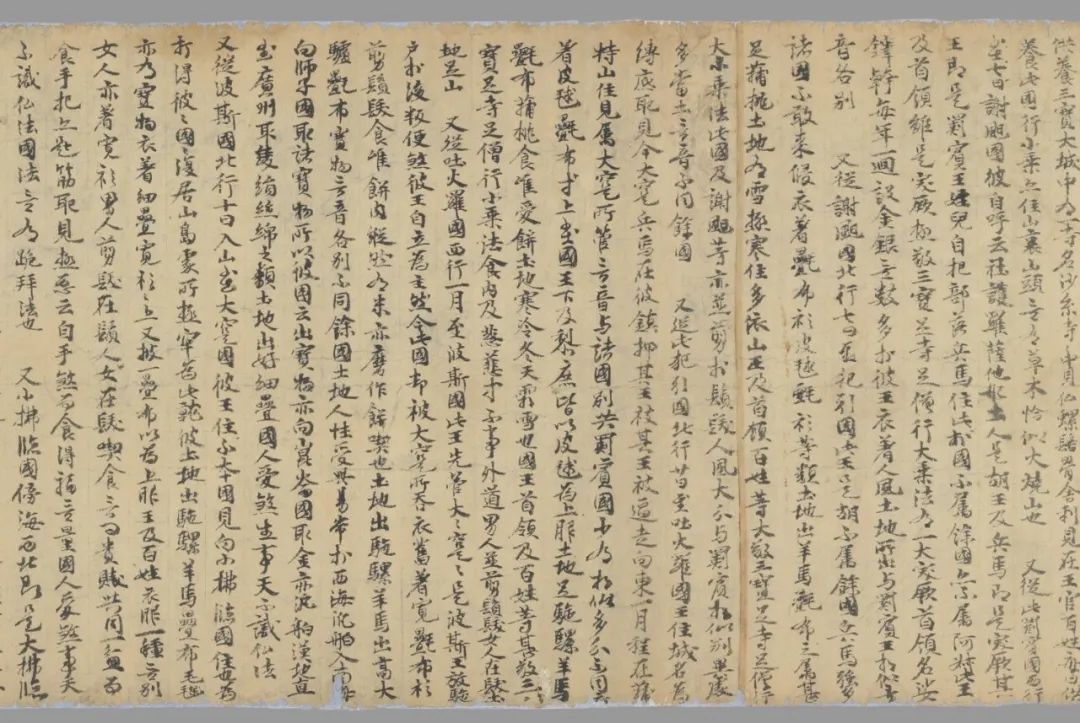 供養三寶大城中有一寺名沙糸寺寺中貝仏螺髻骨舍利見在王官百姓每日供
養此國行小乘亦住山裏山頭無有草木恰似火燒山也 又從此罽賓國西行
至七日謝䫻國彼自呼云社護羅薩他那土人是胡王及兵馬即是突厥其
王即是罽賓王姪兒自把部落兵馬住此於國不屬餘國亦不属阿叔此王
及首領雖是突厥極敬三寶足寺足僧行大乘法有一大突厥首領名娑
鐸幹每年一迴設金銀無數多於彼王衣着人風土地所出与罽賓王相似言
音各別 又從謝䫻國北行七日至犯引國此王是胡不属餘國兵馬強多
諸國不敢來侵衣著㲲布衫皮毬氈衫等類土地出羊馬㲲布之属甚
足蒲桃土地有雪極寒住多依山王及首領百姓等大敬三寶足寺足僧行
大小乘法此國及謝䫻等亦並剪於鬚髮人風大分与罽賓相似別異處
多當土言音不同餘國 又從此犯引國北行廿日至吐火羅國王住城名為
縛底耶見今大寔兵馬在彼鎮押其王被其王被逼走向東一月程在蒲
特山住見属大寔所管言音与諸國別共罽賓國少有相似多分不同衣
着皮毬㲲布等上至國王下及黎庶皆以皮毬為上服土地足駞騾羊馬
㲲布蒲桃食唯愛餅土地寒冷冬天霜雪也國王首領及百姓等甚敬三
寶足寺足僧行小乘法食肉及葱韮等不事外道男人並剪鬚髮女人在髮
地足山 又從吐火羅國西行一月至波斯國此王先管大寔大寔是波斯王放駞
戶於後叛便煞彼王自立為主然今此國却被大寔所吞衣舊著寬㲲布衫
剪鬚髮食唯餅肉縱然有米亦磨作餅喫也土地出駞騾羊馬出高大
驢㲲布寶物言音各別不同餘國土地人性受與易常於西海汎舶入南海
向師子國取諸寶物所以彼國云出寶物亦向崑崙國取金亦汎舶漢地直
至廣州取綾絹絲綿之類土地出好細疊國人愛煞生事天不識仏法
又從波斯國北行十日入山至大寔國彼王住不本國見向小拂臨國住也為
打得彼國彼國復居山島處所極罕為此就彼土地出駞騾羊馬疊布毛毯
亦有寶物衣着細疊寬衫衫上又披一疊布以為上服王及百姓衣服一種無別
女人亦著寬衫男人剪髮在鬚女人在髮喫食無問貴賤共同一盆而
食手把亦匙筯取見極惡云自手煞而食得福無量國人愛煞事天
不識仏法國法無有跪拜法也 又小拂臨國傍海西北即是大拂臨